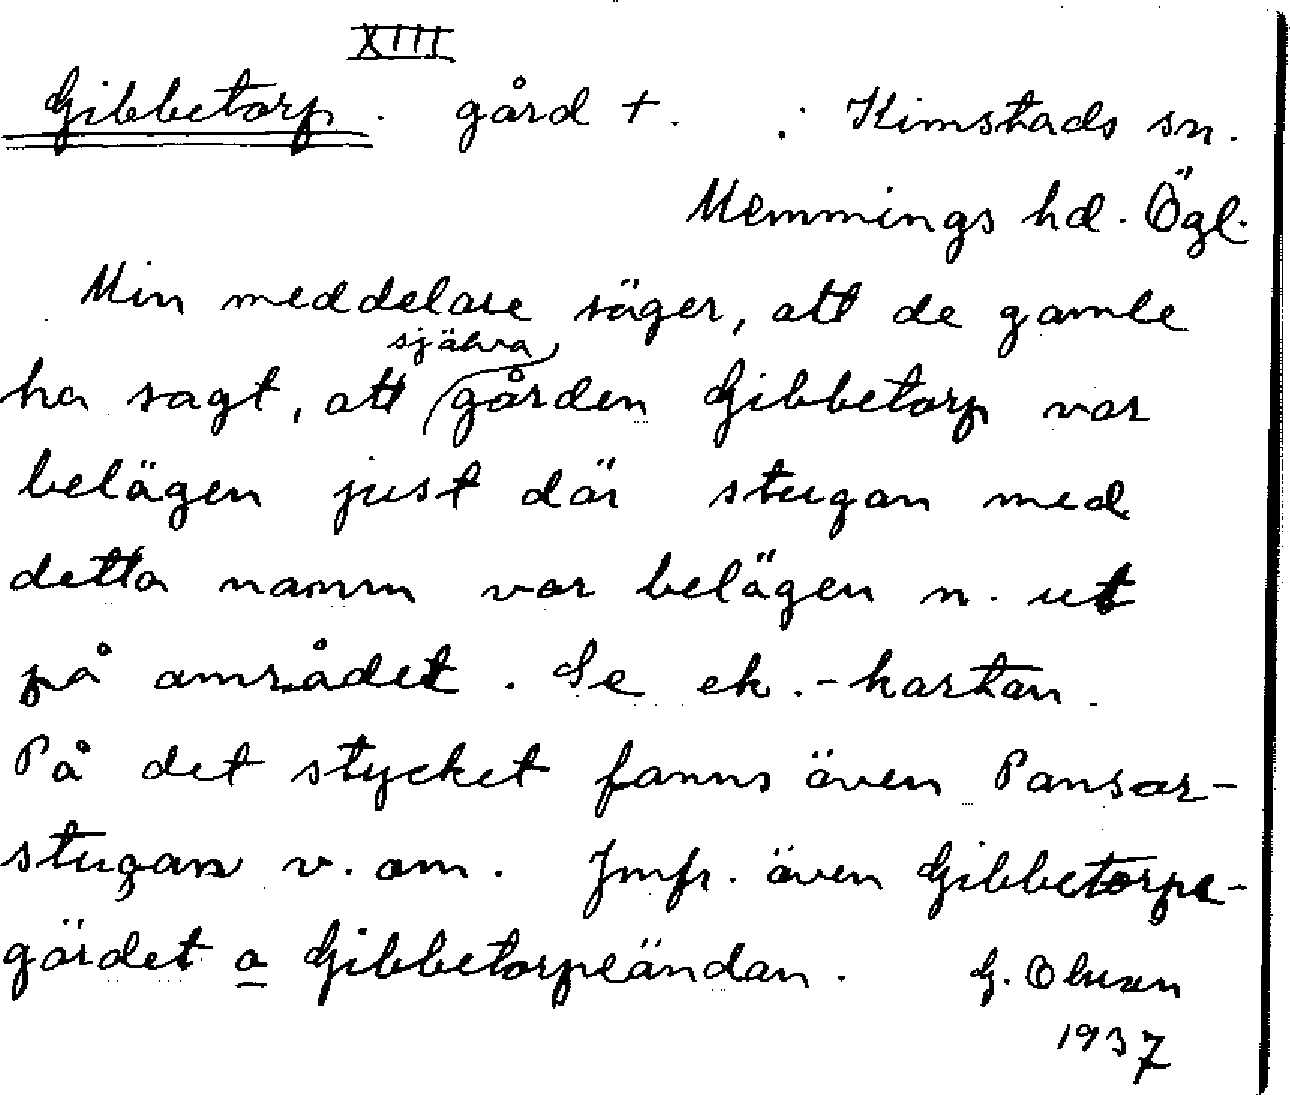 XIII
Gibbetorp. gård +. : Kimstads sn.
Memmings hd. Ögl.
Min meddelare säger, att de gamle
själva
ha sagt, att gården Gibbetorp var
belägen just där stugan med
detta namn var belägen n. ut
på området. Se ek.-kartan.
På det stycket fanns även Pansar-
stugan v. om. Jmfr. även Gibbetorpe-
gärdet o Gibbetorpeändan. G. Olsson
1937